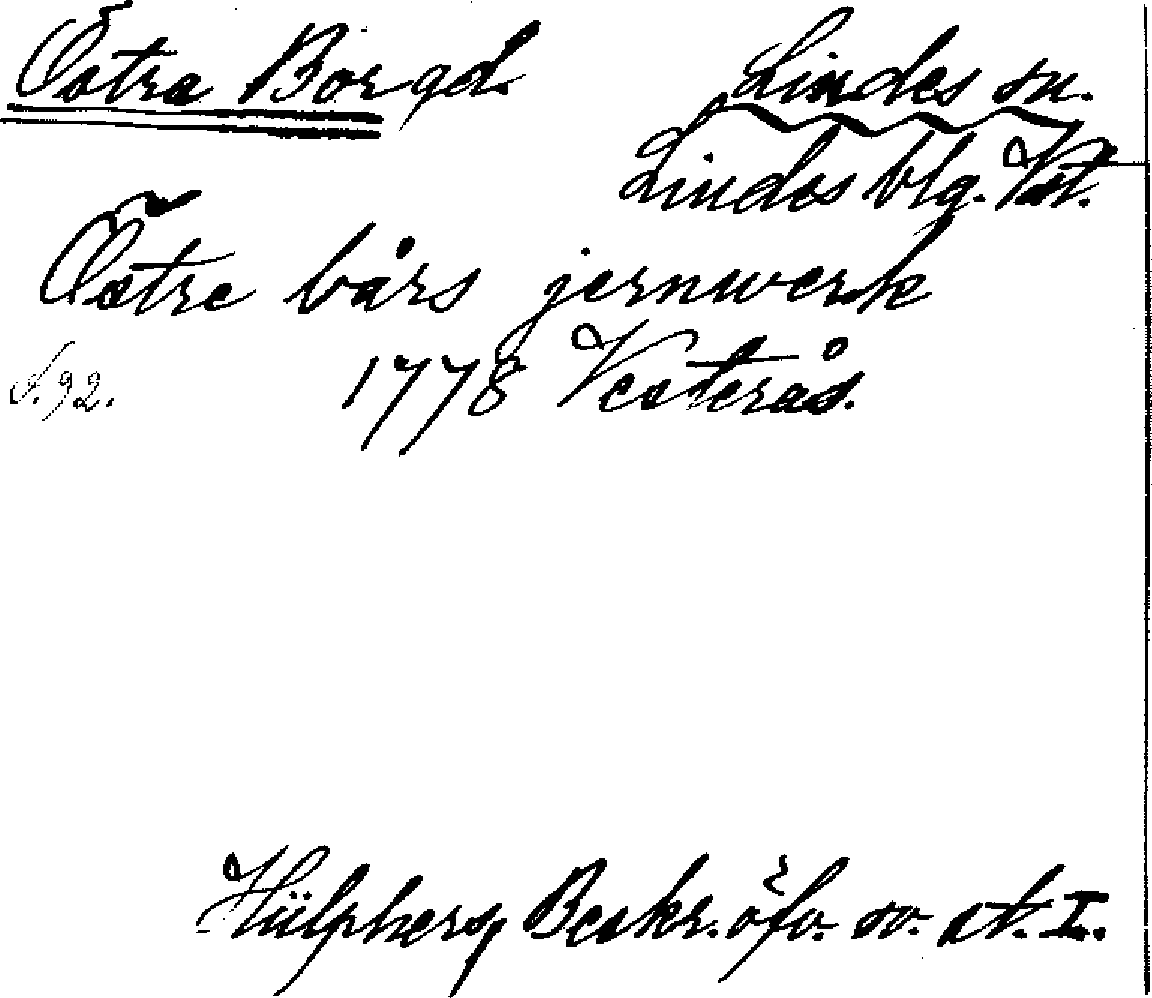 Östra Bor gd. Lindes sn.
Lindes blg. Vstl.
Östre bårs jernwerk
S. 92. 1778 Vesterås.
Hülphers, Beskr. öfv. sv. st. I.